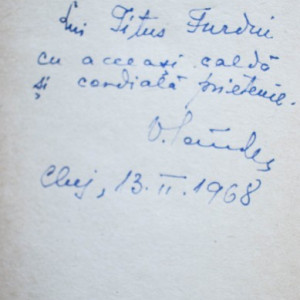 Lui Titus Furdui
cu aceeași caldă
și cordială prietenie.
Cluj, 13.II.1968